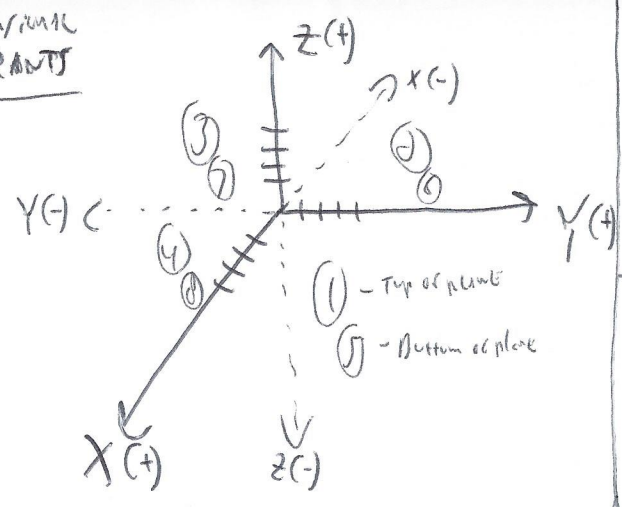 Z(+)
X(-)
3
7
2
6
Y(-)
Y(+)
4
8
1 - Top of plane
5 - Bottom of plane
X(+)
Z(-)